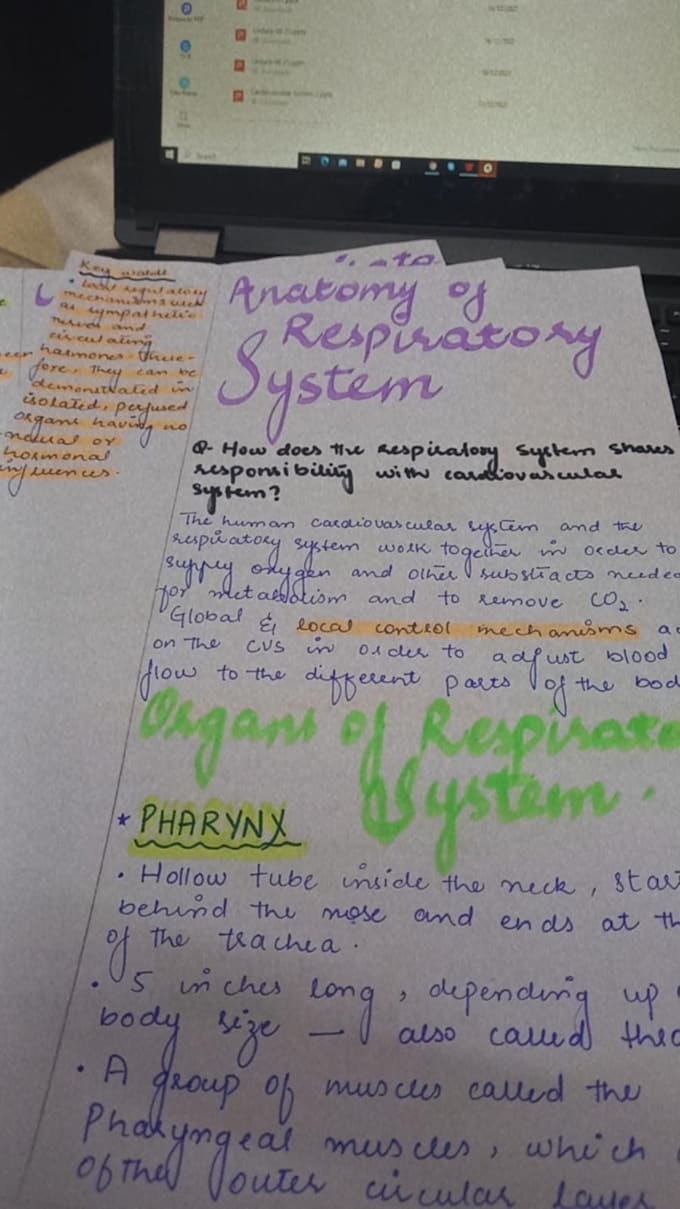 Search
Key words
• Local regulatory
mechanisms work
as sympathetic
nerves and
circulating
hormones. There-
fore, they can be
demonstrated in
isolated, perfused
organs having no
neural or
hormonal
influences.
Anatomy of
Respiratory
System
Q- How does the respiratory system shares
responsibility with cardiovascular
system?
The human cardiovascular system and the
respiratory system work together in order to
supply oxygen and other substracts neede
for metabolism and to remove CO2.
Global & local control mechanisms a
on the CVS in order to adjust blood
flow to the different parts of the bod
Organs of Respirato
System.
* PHARYNX
• Hollow tube inside the neck, star
behind the nose and ends at th
of the trachea.
• 5 inches long, depending up
body size — also called thro
• A group of muscles called the
Pharyngeal muscles, which
of the outer circular layer